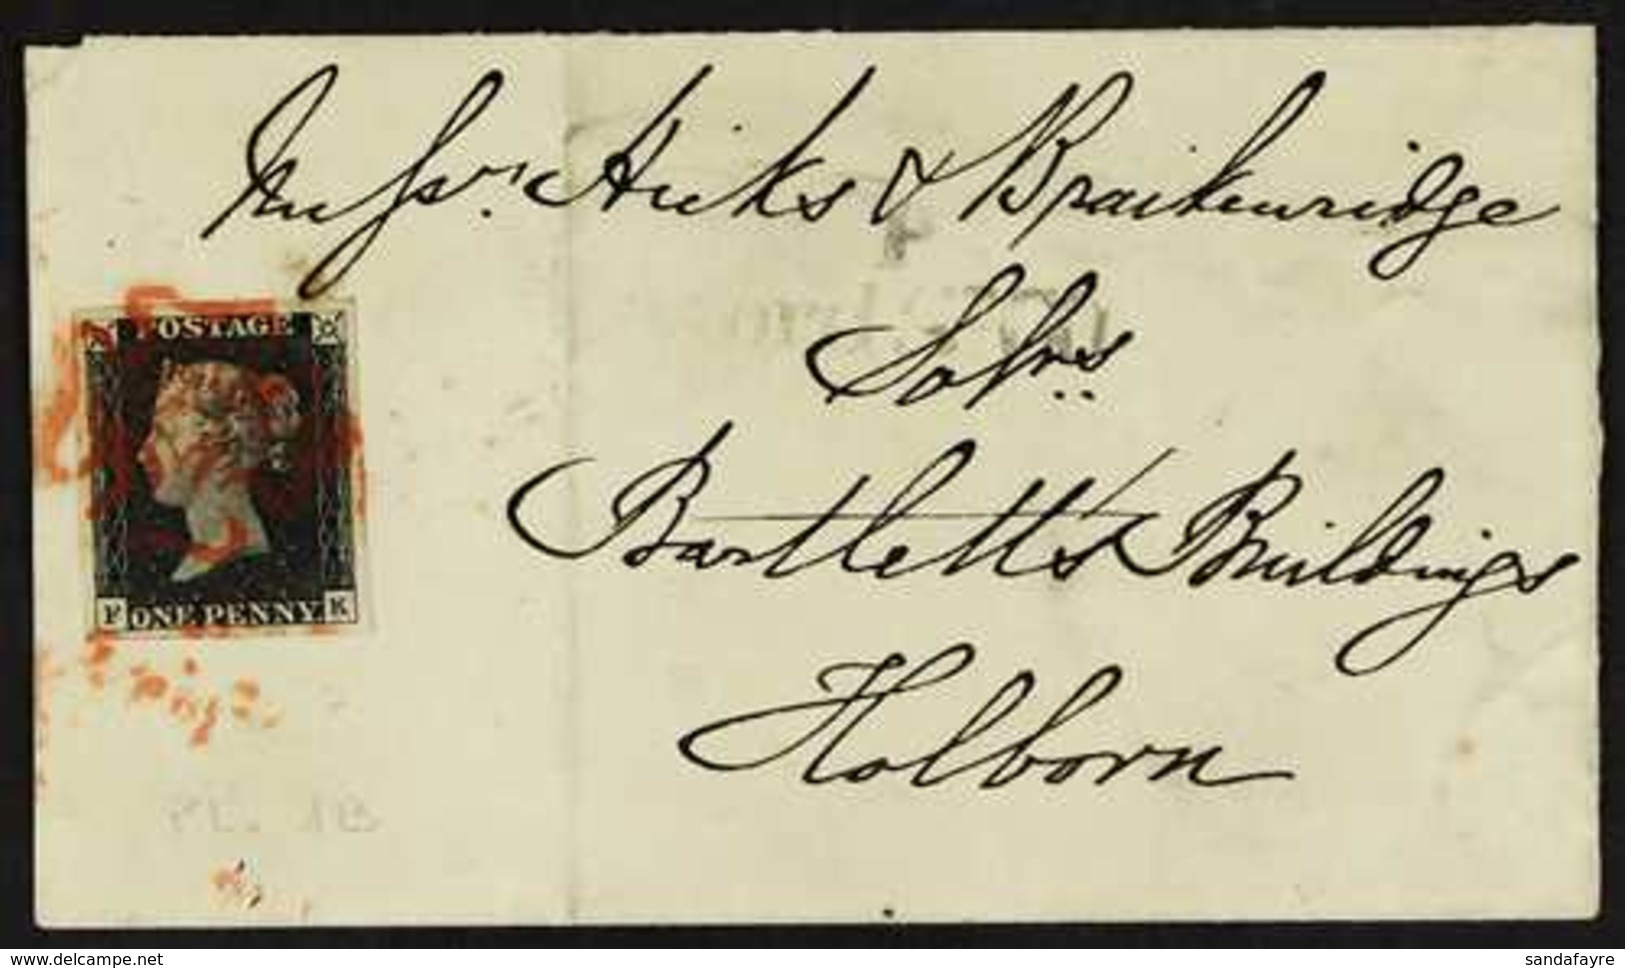 Messrs. Hicks & Braikenridge
Solrs
Bartletts Buildings
Holborn
POSTAGE
F ONE PENNY K
www.delcampe.net
sandafayre